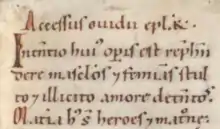 Accessus ouidii epl̄aꝝ.
Intentio hui᷒ op̄is est rep̄hen
dere masc̄los ⁊ feminas stul
to ⁊ illicito amore detentos.
Materia h᷒ heroes ⁊ matrone.